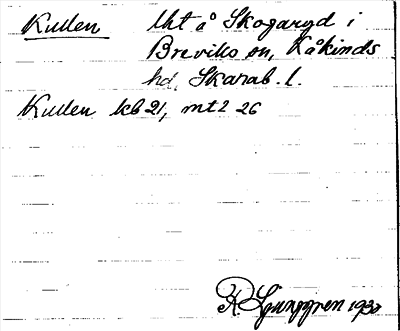 Kullen lht å Skogaryd i
Breviks sn, Kåkinds
hd, Skarab. l.
Kullen kb 21, mt 2 26
R. Ljunggren 1930